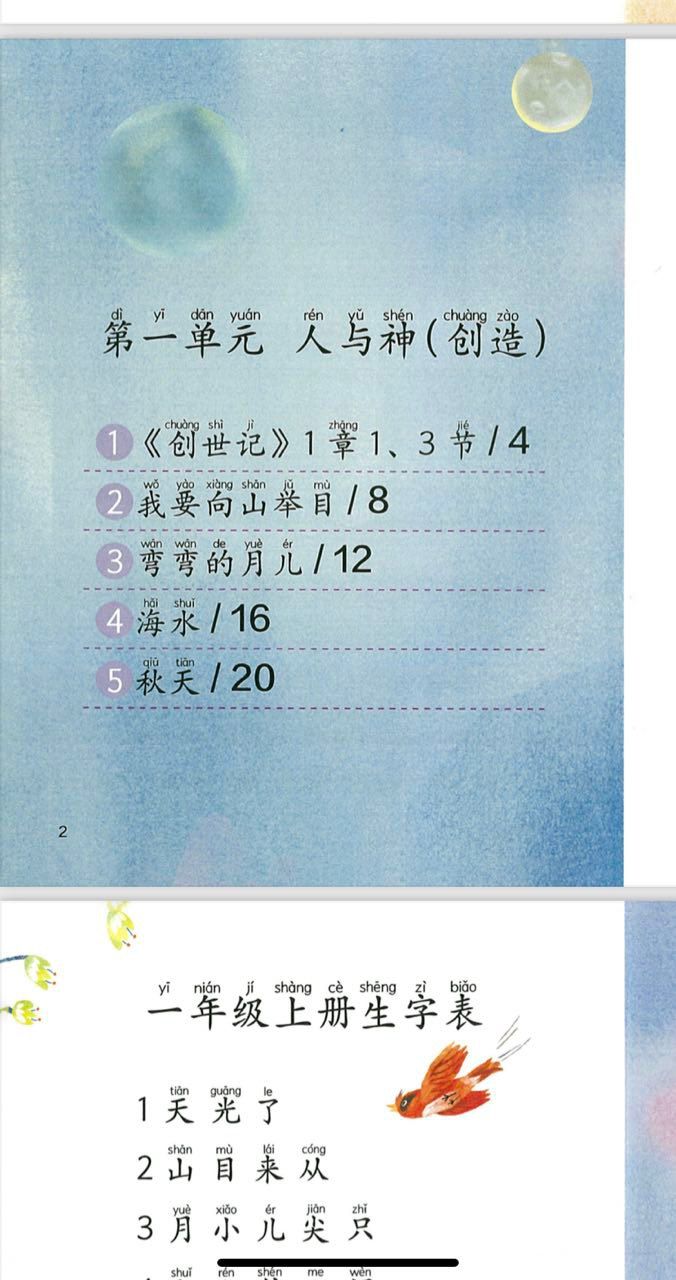 dì yī dān yuán rén yǔ shén chuàng zào
第一单元 人与神(创造)
chuàng shì jì zhāng jié
1《创世记》1章1、3节/4
wǒ yào xiàng shān jǔ mù
2我要向山举目/8
wān wān de yuè ér
3弯弯的月儿/12
hǎi shuǐ
4海水/16
qiū tiān
5秋天/20
2
yī nián jí shàng cè shēng zì biǎo
一年级上册生字表
tiān guāng le
1天光了
shān mù lái cóng
2山目来从
yuè xiǎo ér jiān zhǐ
3月小儿尖只
shuǐ rén shén me wèn